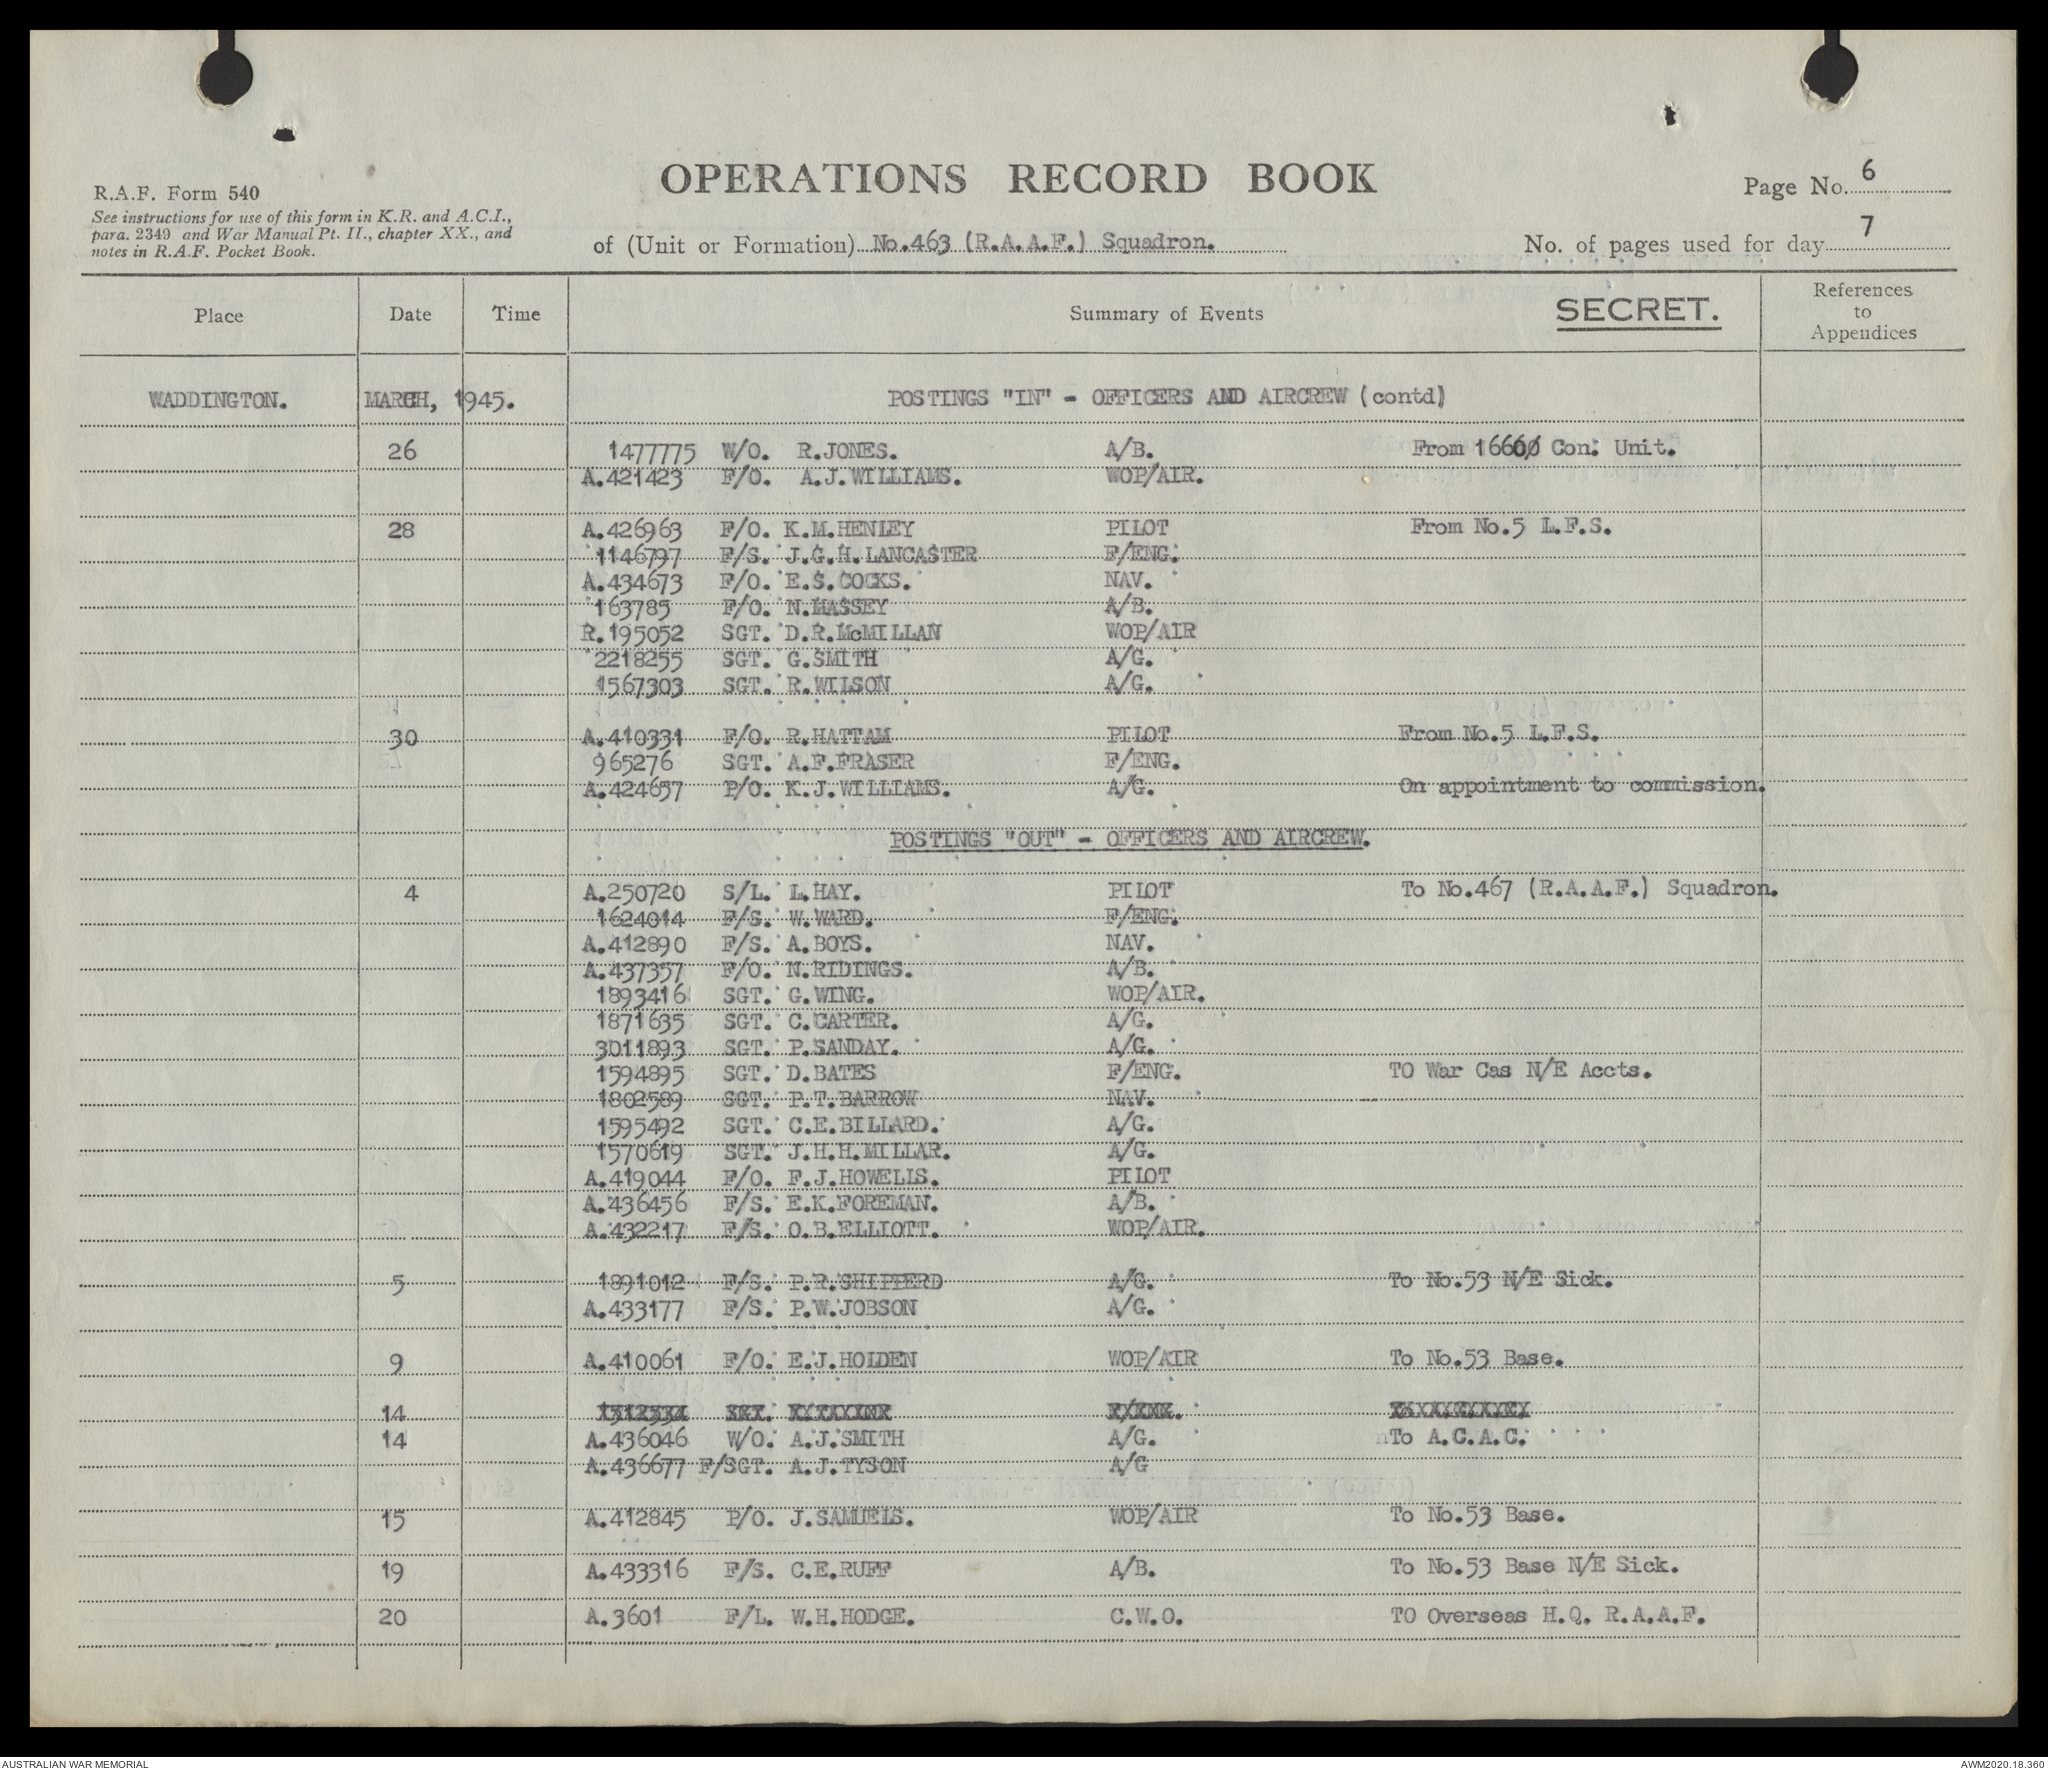 OPERATIONS RECORD BOOK
Page No. 6
R.A.F. Form 540
See instructions for use of this form in K.R. and A.C.I.,
para. 2349 and War Manual Pt. II., chapter XX., and
notes in R.A.F. Pocket Book.
of (Unit or Formation) No.463 (R.A.A.F.) Squadron.
No. of pages used for day 7
Place Date Time Summary of Events SECRET. References to Appendices
WADDINGTON. MARCH, 1945. POSTINGS "IN" - OFFICERS AND AIRCREW (contd)
26 1477775 W/O. R.JONES. A/B. From 1660 Con. Unit.
A.421423 F/O. A.J.WILLIAMS. WOP/AIR.
28 A.426963 F/O. K.M.HENLEY PILOT From No.5 L.F.S.
1146797 F/S. J.G.H.LANCASTER F/ENG.
A.434673 F/O. E.S.COCKS. NAV.
163785 F/O. N.MASSEY A/B.
R.195052 SGT. D.R.McMILLAN WOP/AIR
2218255 SGT. G.SMITH A/G.
1567303 SGT. R.WILSON A/G.
30 A.410331 F/O. R.HATTAM PILOT From No.5 L.F.S.
965276 SGT. A.F.FRASER F/ENG.
A.424657 P/O. K.J.WILLIAMS. A/G. On appointment to commission.
POSTINGS "OUT" - OFFICERS AND AIRCREW.
4 A.250720 S/L. L.HAY. PILOT To No.467 (R.A.A.F.) Squadron.
1624014 F/S. W.WARD. F/ENG.
A.412890 F/S. A.BOYS. NAV.
A.437357 F/O. N.RIDINGS. A/B.
1893416 SGT. G.WING. WOP/AIR.
1871635 SGT. C.CARTER. A/G.
3011893 SGT. P.SANDAY. A/G.
1594895 SGT. D.BATES F/ENG. TO War Cas N/E Accts.
1802589 SGT. P.T.BARROW NAV.
1595492 SGT. C.E.BILLARD. A/G.
1570619 SGT. J.H.H.MILLAR. A/G.
A.419044 F/O. F.J.HOWELLS. PILOT
A.436456 F/S. E.K.FOREMAN. A/B.
A.432217 F/S. O.B.ELLIOTT. WOP/AIR.
5 1891012 F/S. P.R.SHIPPERD A/G. To No.53 N/E Sick.
A.433177 F/S. P.W.JOBSON A/G.
9 A.410061 F/O. E.J.HOLDEN WOP/AIR To No.53 Base.
14
14 A.436046 W/O. A.J.SMITH A/G. To A.C.A.C.
A.436677 F/SGT. A.J.TYSON A/G
15 A.412845 P/O. J.SAMUELS. WOP/AIR To No.53 Base.
19 A.433316 F/S. C.E.RUFF A/B. To No.53 Base N/E Sick.
20 A.3601 F/L. W.H.HODGE. C.W.O. TO Overseas H.Q. R.A.A.F.
AUSTRALIAN WAR MEMORIAL AWM2020.18.360